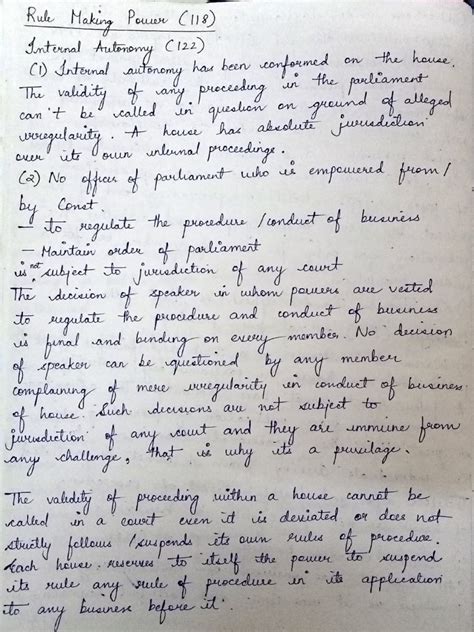 Rule Making Power (118)
Internal Autonomy (122)
(1) Internal autonomy has been conformed on the house.
The validity of any proceeding in the parliament
can't be called in question on ground of alleged
irregularity. A house has absolute jurisdiction
over its own internal proceedings.
(2) No officer of parliament who is empowered from/
by Const.
— to regulate the procedure /conduct of business
— Maintain order of parliament
is not subject to jurisdiction of any court
The decision of speaker in whom powers are vested
to regulate the procedure and conduct of business
is final and binding on every member. No decision
of speaker can be questioned by any member
complaining of mere irregularity in conduct of business
of house. Such decisions are not subject to
jurisdiction of any court and they are immune from
any challenge, that is why its a privilage.
The validity of proceeding within a house cannot be
called in a court even it is deviated or does not
strictly follows /suspends its own rules of procedure.
Each house reserves to itself the power to suspend
its rule any rule of procedure in its application
to any business before it.